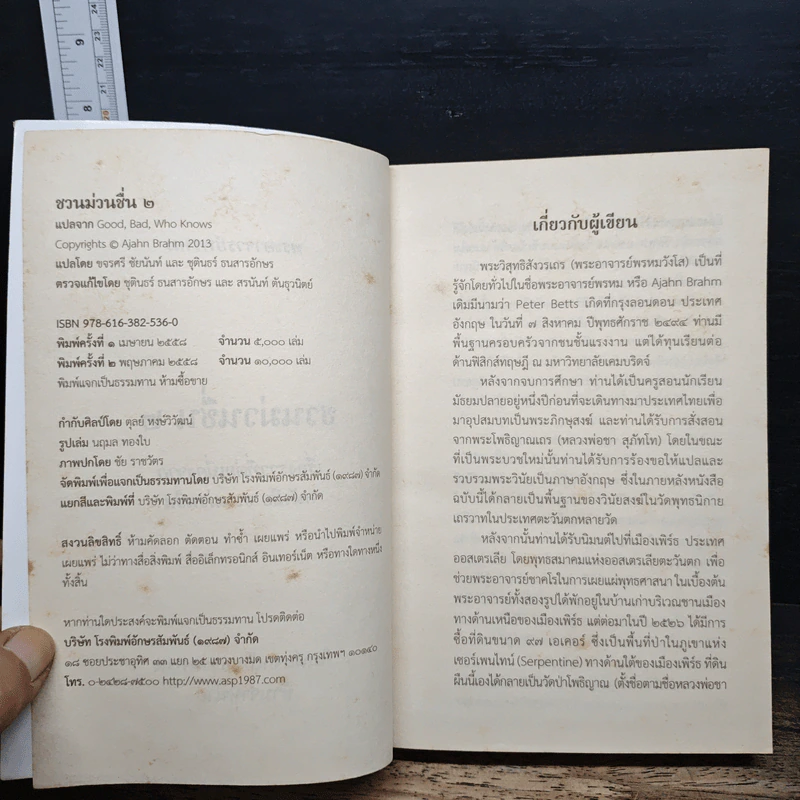 ชวนม่วนชื่น ๒
แปลจาก Good, Bad, Who Knows
Copyrights © Ajahn Brahm 2013
แปลโดย ขจรศรี ชัยนันท์ และ ชุตินธร์ ธนสารอักษร
ตรวจแก้ไขโดย ชุตินธร์ ธนสารอักษร และ สรนันท์ ตันธุวนิตย์
ISBN 978-616-382-536-0
พิมพ์ครั้งที่ ๑ เมษายน ๒๕๕๘ จำนวน ๕,๐๐๐ เล่ม
พิมพ์ครั้งที่ ๒ พฤษภาคม ๒๕๕๘ จำนวน ๑๐,๐๐๐ เล่ม
พิมพ์แจกเป็นธรรมทาน ห้ามซื้อขาย
กำกับศิลป์โดย ตุลย์ หงษ์วิวัฒน์
รูปเล่ม นฤมล ทองใบ
ภาพปกโดย ชัย ราชวัตร
จัดพิมพ์เพื่อแจกเป็นธรรมทานโดย บริษัท โรงพิมพ์อักษรสัมพันธ์ (๑๙๘๗) จำกัด
แยกสีและพิมพ์ที่ บริษัท โรงพิมพ์อักษรสัมพันธ์ (๑๙๘๗) จำกัด
สงวนลิขสิทธิ์ ห้ามคัดลอก ตัดตอน ทำซ้ำ เผยแพร่ หรือนำไปพิมพ์จำหน่าย
เผยแพร่ ไม่ว่าทางสื่อสิ่งพิมพ์ สื่ออิเล็กทรอนิกส์ อินเทอร์เน็ต หรือทางใดทางหนึ่ง
ทั้งสิ้น
หากท่านใดประสงค์จะพิมพ์แจกเป็นธรรมทาน โปรดติดต่อ
บริษัท โรงพิมพ์อักษรสัมพันธ์ (๑๙๘๗) จำกัด
๑๘ ซอยประชาอุทิศ ๓๓ แยก ๒๕ แขวงบางมด เขตทุ่งครุ กรุงเทพฯ ๑๐๑๔๐
โทร. ๐-๒๔๒๘-๗๕๐๐ http://www.asp1987.com
เกี่ยวกับผู้เขียน
พระวิสุทธิสังวรเถร (พระอาจารย์พรหมวังโส) เป็นที่
รู้จักโดยทั่วไปในชื่อพระอาจารย์พรหม หรือ Ajahn Brahm
เดิมมีนามว่า Peter Betts เกิดที่กรุงลอนดอน ประเทศ
อังกฤษ ในวันที่ ๗ สิงหาคม ปีพุทธศักราช ๒๔๙๔ ท่านมี
พื้นฐานครอบครัวจากชนชั้นแรงงาน แต่ได้ทุนเรียนต่อ
ด้านฟิสิกส์ทฤษฎี ณ มหาวิทยาลัยเคมบริตจ์
หลังจากจบการศึกษา ท่านได้เป็นครูสอนนักเรียน
มัธยมปลายอยู่หนึ่งปีก่อนที่จะเดินทางมาประเทศไทยเพื่อ
มาอุปสมบทเป็นพระภิกษุสงฆ์ และท่านได้รับการสั่งสอน
จากพระโพธิญาณเถร (หลวงพ่อชา สุภัทโท) โดยในขณะ
ที่เป็นพระบวชใหม่นั้นท่านได้รับการร้องขอให้แปลและ
รวบรวมพระวินัยเป็นภาษาอังกฤษ ซึ่งในภายหลังหนังสือ
ฉบับนี้ได้กลายเป็นพื้นฐานของวินัยสงฆ์ในวัดพุทธนิกาย
เถรวาทในประเทศตะวันตกหลายวัด
หลังจากนั้นท่านได้รับนิมนต์ไปที่เมืองเพิร์ธ ประเทศ
ออสเตรเลีย โดยพุทธสมาคมแห่งออสเตรเลียตะวันตก เพื่อ
ช่วยพระอาจารย์ชาคโรในการเผยแผ่พุทธศาสนา ในเบื้องต้น
พระอาจารย์ทั้งสองรูปได้พักอยู่ในบ้านเก่าบริเวณชานเมือง
ทางด้านเหนือของเมืองเพิร์ธ แต่ต่อมาในปี ๒๕๒๖ ได้มีการ
ซื้อที่ดินขนาด ๙๗ เอเคอร์ ซึ่งเป็นพื้นที่ป่าในภูเขาแห่ง
เซอร์เพนไทน์ (Serpentine) ทางด้านใต้ของเมืองเพิร์ธ ที่ดิน
ผืนนี้เองได้กลายเป็นวัดป่าโพธิญาณ (ตั้งชื่อตามชื่อหลวงพ่อชา